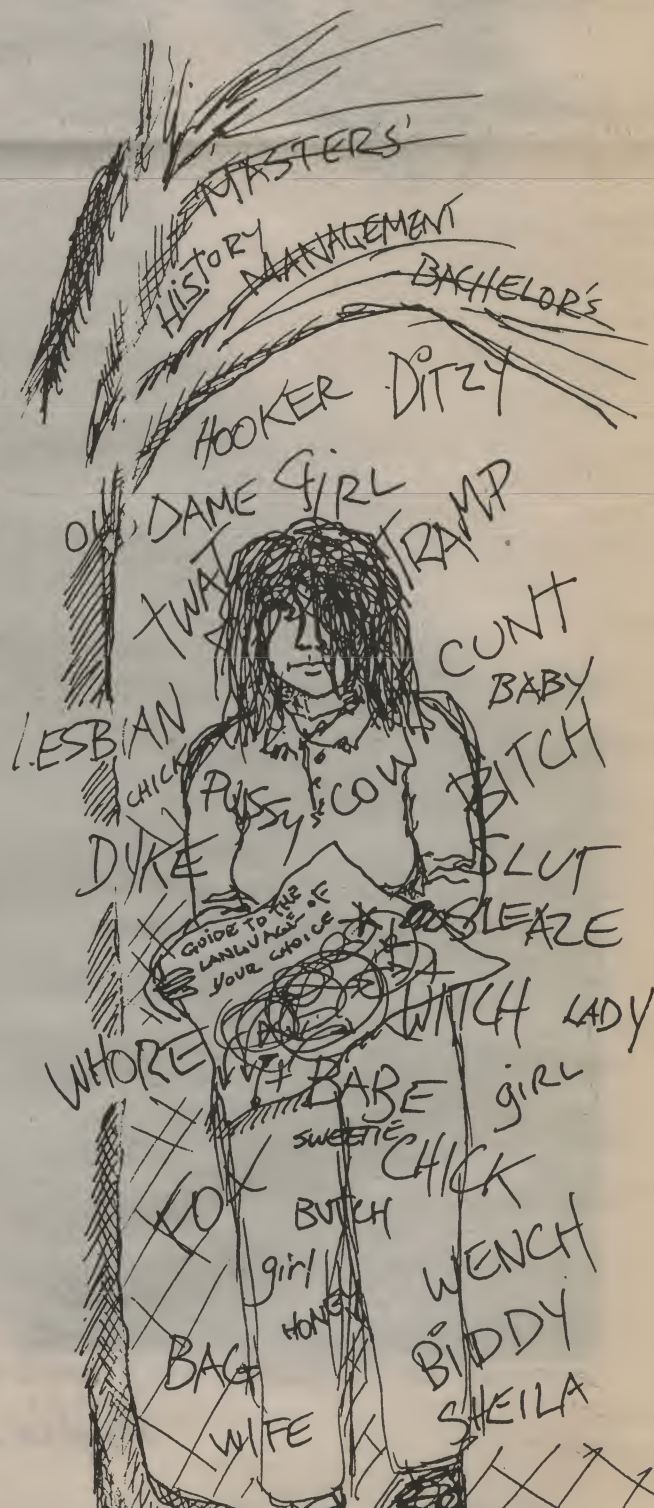 MASTERS'
HISTORY MANAGEMENT
BACHELOR'S
HOOKER DITZY
DAME GIRL
TRAMP
TWAT
CUNT
BABY
LESBIAN
CHICK
PUSSY COW
BITCH
DYKE
SLUT
GUIDE TO THE
LANGUAGE OF
YOUR CHOICE
SLEAZE
WITCH LADY
WHORE
BABE
girl
SWEETIE
CHICK
FOX
BUTCH
WENCH
girl
HONEY
BIDDY
BAG
SHEILA
WIFE